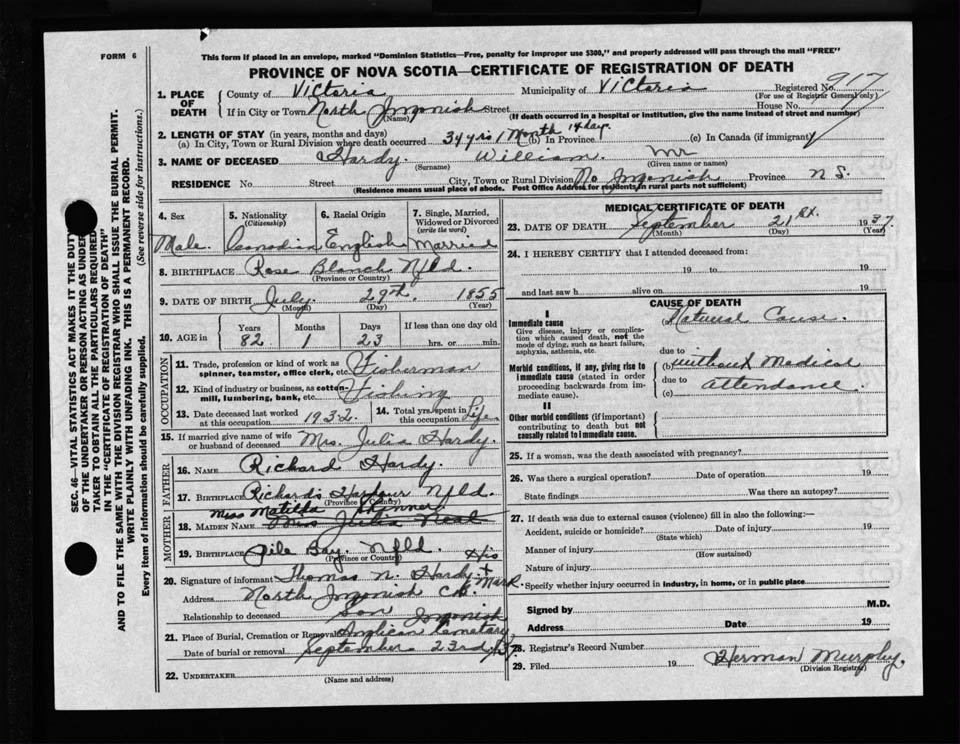 FORM 6
This form if placed in an envelope, marked "Dominion Statistics—Free, penalty for improper use $300," and properly addressed will pass through the mail "FREE"
PROVINCE OF NOVA SCOTIA—CERTIFICATE OF REGISTRATION OF DEATH
1. PLACE OF DEATH
County of Victoria Municipality of Victoria Registered No. 917
(For use of Registrar General only)
If in City or Town North Ingonish Street House No.
(Name) (If death occurred in a hospital or institution, give the name instead of street and number)
2. LENGTH OF STAY (in years, months and days)
(a) In City, Town or Rural Division where death occurred 34 yrs 1 Month 14 day. (b) In Province (c) In Canada (if immigrant)
3. NAME OF DECEASED Hardy. William. Mr
(Surname) (Given name or names)
RESIDENCE No. Street City, Town or Rural Division No Ingonish Province N S.
(Residence means usual place of abode. Post Office Address for residents in rural parts not sufficient)
4. Sex
Male.
5. Nationality
(Citizenship)
Canadian
6. Racial Origin
English
7. Single, Married, Widowed or Divorced
(write the word)
Married
8. BIRTHPLACE Rose Blanch Nfld.
(Province or Country)
9. DATE OF BIRTH July. 29th. 1855
(Month) (Day) (Year)
10. AGE in
Years Months Days If less than one day old
82 1 23 hrs. or min.
OCCUPATION
11. Trade, profession or kind of work as spinner, teamster, office clerk, etc. Fisherman
12. Kind of industry or business, as cotton-mill, lumbering, bank, etc. Fishing
13. Date deceased last worked at this occupation 1932.
14. Total yrs. spent in this occupation Life.
15. If married give name of wife or husband of deceased Mrs. Julia Hardy.
FATHER
16. NAME Richard Hardy.
17. BIRTHPLACE Richard's Harbour Nfld.
(Province or Country)
MOTHER
Miss Matilda Skinner
18. MAIDEN NAME Miss Julia Neal
19. BIRTHPLACE Pile Bay. Nfld.
(Province or Country)
20. Signature of informant Thomas N. Hardy His + Mark.
Address North Ingonish C.B.
Relationship to deceased Son
21. Place of Burial, Cremation or Removal Ingonish Anglican Cemetary
Date of burial or removal September 23rd/37.
22. UNDERTAKER
(Name and address)
MEDICAL CERTIFICATE OF DEATH
23. DATE OF DEATH September 21st. 1937.
(Month) (Day) (Year)
24. I HEREBY CERTIFY that I attended deceased from:
19 to 19
and last saw h alive on 19
CAUSE OF DEATH
I
Immediate cause
Give disease, injury or complication which caused death, not the mode of dying, such as heart failure, asphyxia, asthenia, etc.
Natural Cause.
due to
Morbid conditions, if any, giving rise to immediate cause (stated in order proceeding backwards from immediate cause).
(b) without Medical
due to
(c) attendance.
II
Other morbid conditions (if important) contributing to death but not causally related to immediate cause.
25. If a woman, was the death associated with pregnancy?
26. Was there a surgical operation? Date of operation 19
State findings Was there an autopsy?
27. If death was due to external causes (violence) fill in also the following:—
Accident, suicide or homicide? Date of injury 19
(State which)
Manner of injury
(How sustained)
Nature of injury
Specify whether injury occurred in industry, in home, or in public place
Signed by M.D.
Address Date 19
28. Registrar's Record Number
29. Filed 19 Herman Murphy.
(Division Registrar)
SEC. 46—VITAL STATISTICS ACT MAKES IT THE DUTY
OF THE UNDERTAKER OR PERSON ACTING AS UNDER
TAKER TO OBTAIN ALL THE PARTICULARS REQUIRED
IN THE "CERTIFICATE OF REGISTRATION OF DEATH"
AND TO FILE THE SAME WITH THE DIVISION REGISTRAR WHO SHALL ISSUE THE BURIAL PERMIT.
WRITE PLAINLY WITH UNFADING INK. THIS IS A PERMANENT RECORD.
Every item of information should be carefully supplied. (See reverse side for instructions.)